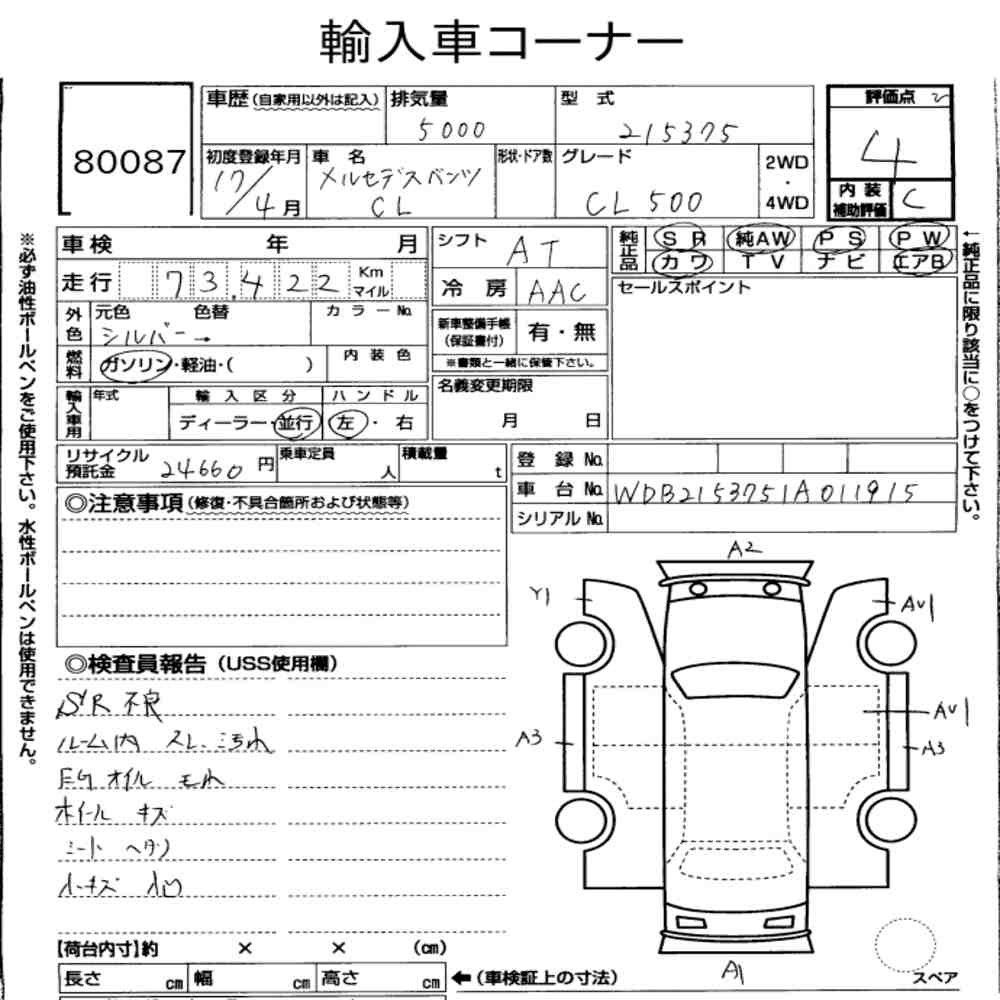 輸入車コーナー
80087
車歴(自家用以外は記入) 排気量 型式 評価点
5000 215375
4
初度登録年月 車名 形状・ドア数 グレード 2WD・4WD
17/4月 メルセデスベンツ CL CL500
内装補助評価 C
車検 年 月 シフト AT
純正品 SR 純AW PS PW
カワ TV ナビ エアB
走行 73,422 Km マイル
冷房 AAC セールスポイント
外色 元色 色替 カラーNo.
シルバー →
新車整備手帳(保証書付) 有・無
※書類と一緒に保管下さい。
燃料 ガソリン・軽油・( ) 内装色
名義変更期限
月 日
輸入車用 年式 輸入区分 ハンドル
ディーラー・並行 左・右
リサイクル預託金 24660円 乗車定員 人 積載量 t
登録No.
車台No. WDB2153751A011915
シリアルNo.
◎注意事項(修復・不具合箇所および状態等)
◎検査員報告(USS使用欄)
S/R 不良
ルーム内 スレ、汚れ
EG オイル モレ
ホイール キズ
シート ヘタリ
小キズ 小凹
A2
Y1
AU1
AU1
A3
A3
A1
スペア
【荷台内寸】約 × × (cm)
長さ cm 幅 cm 高さ cm ←(車検証上の寸法)
※必ず油性ボールペンをご使用下さい。水性ボールペンは使用できません。
←純正品に限り該当に○をつけて下さい。